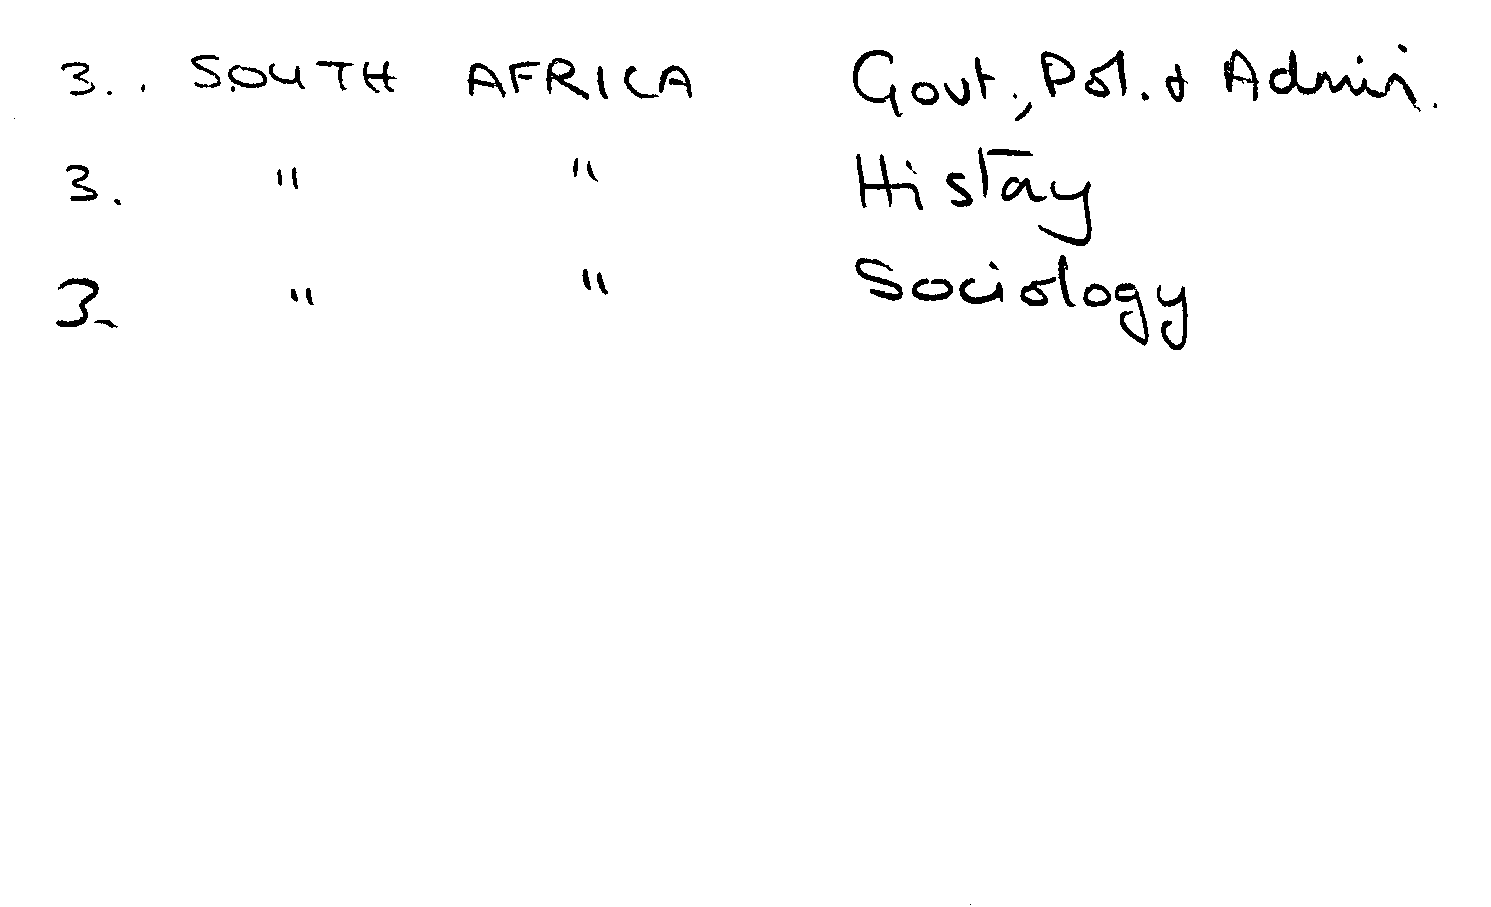 3.. SOUTH AFRICA Govt., Pol. & Admin.
3. " " History
3. " " Sociology